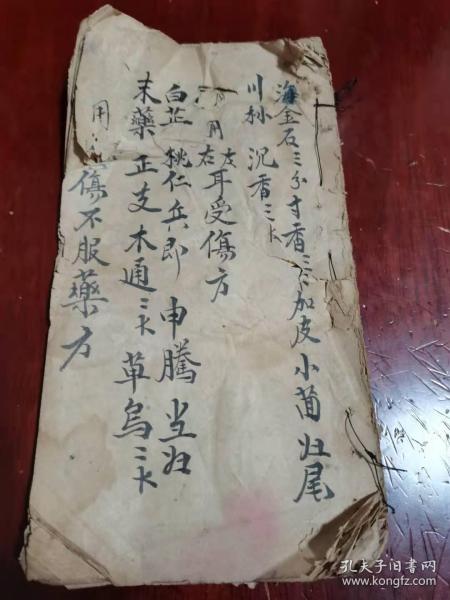 海金石三分寸香三卜加皮小茴归尾
川 沉香三卜
左
右耳受傷方
白芷 桃仁 兵郎 申騰 当归
末藥 正支 木通三卜 草烏三卜
用 傷不服藥方
孔夫子旧书网
www.kongfz.com